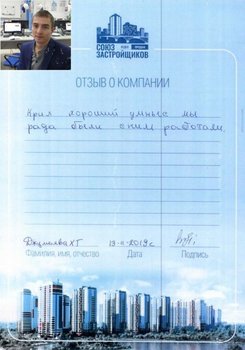 СОЮЗ
ЗАСТРОЙЩИКОВ
ОТЗЫВ О КОМПАНИИ
хороший умные мы
рада были с ним работали
13-11-2019г
Фамилия, имя, отчество Дата Подпись